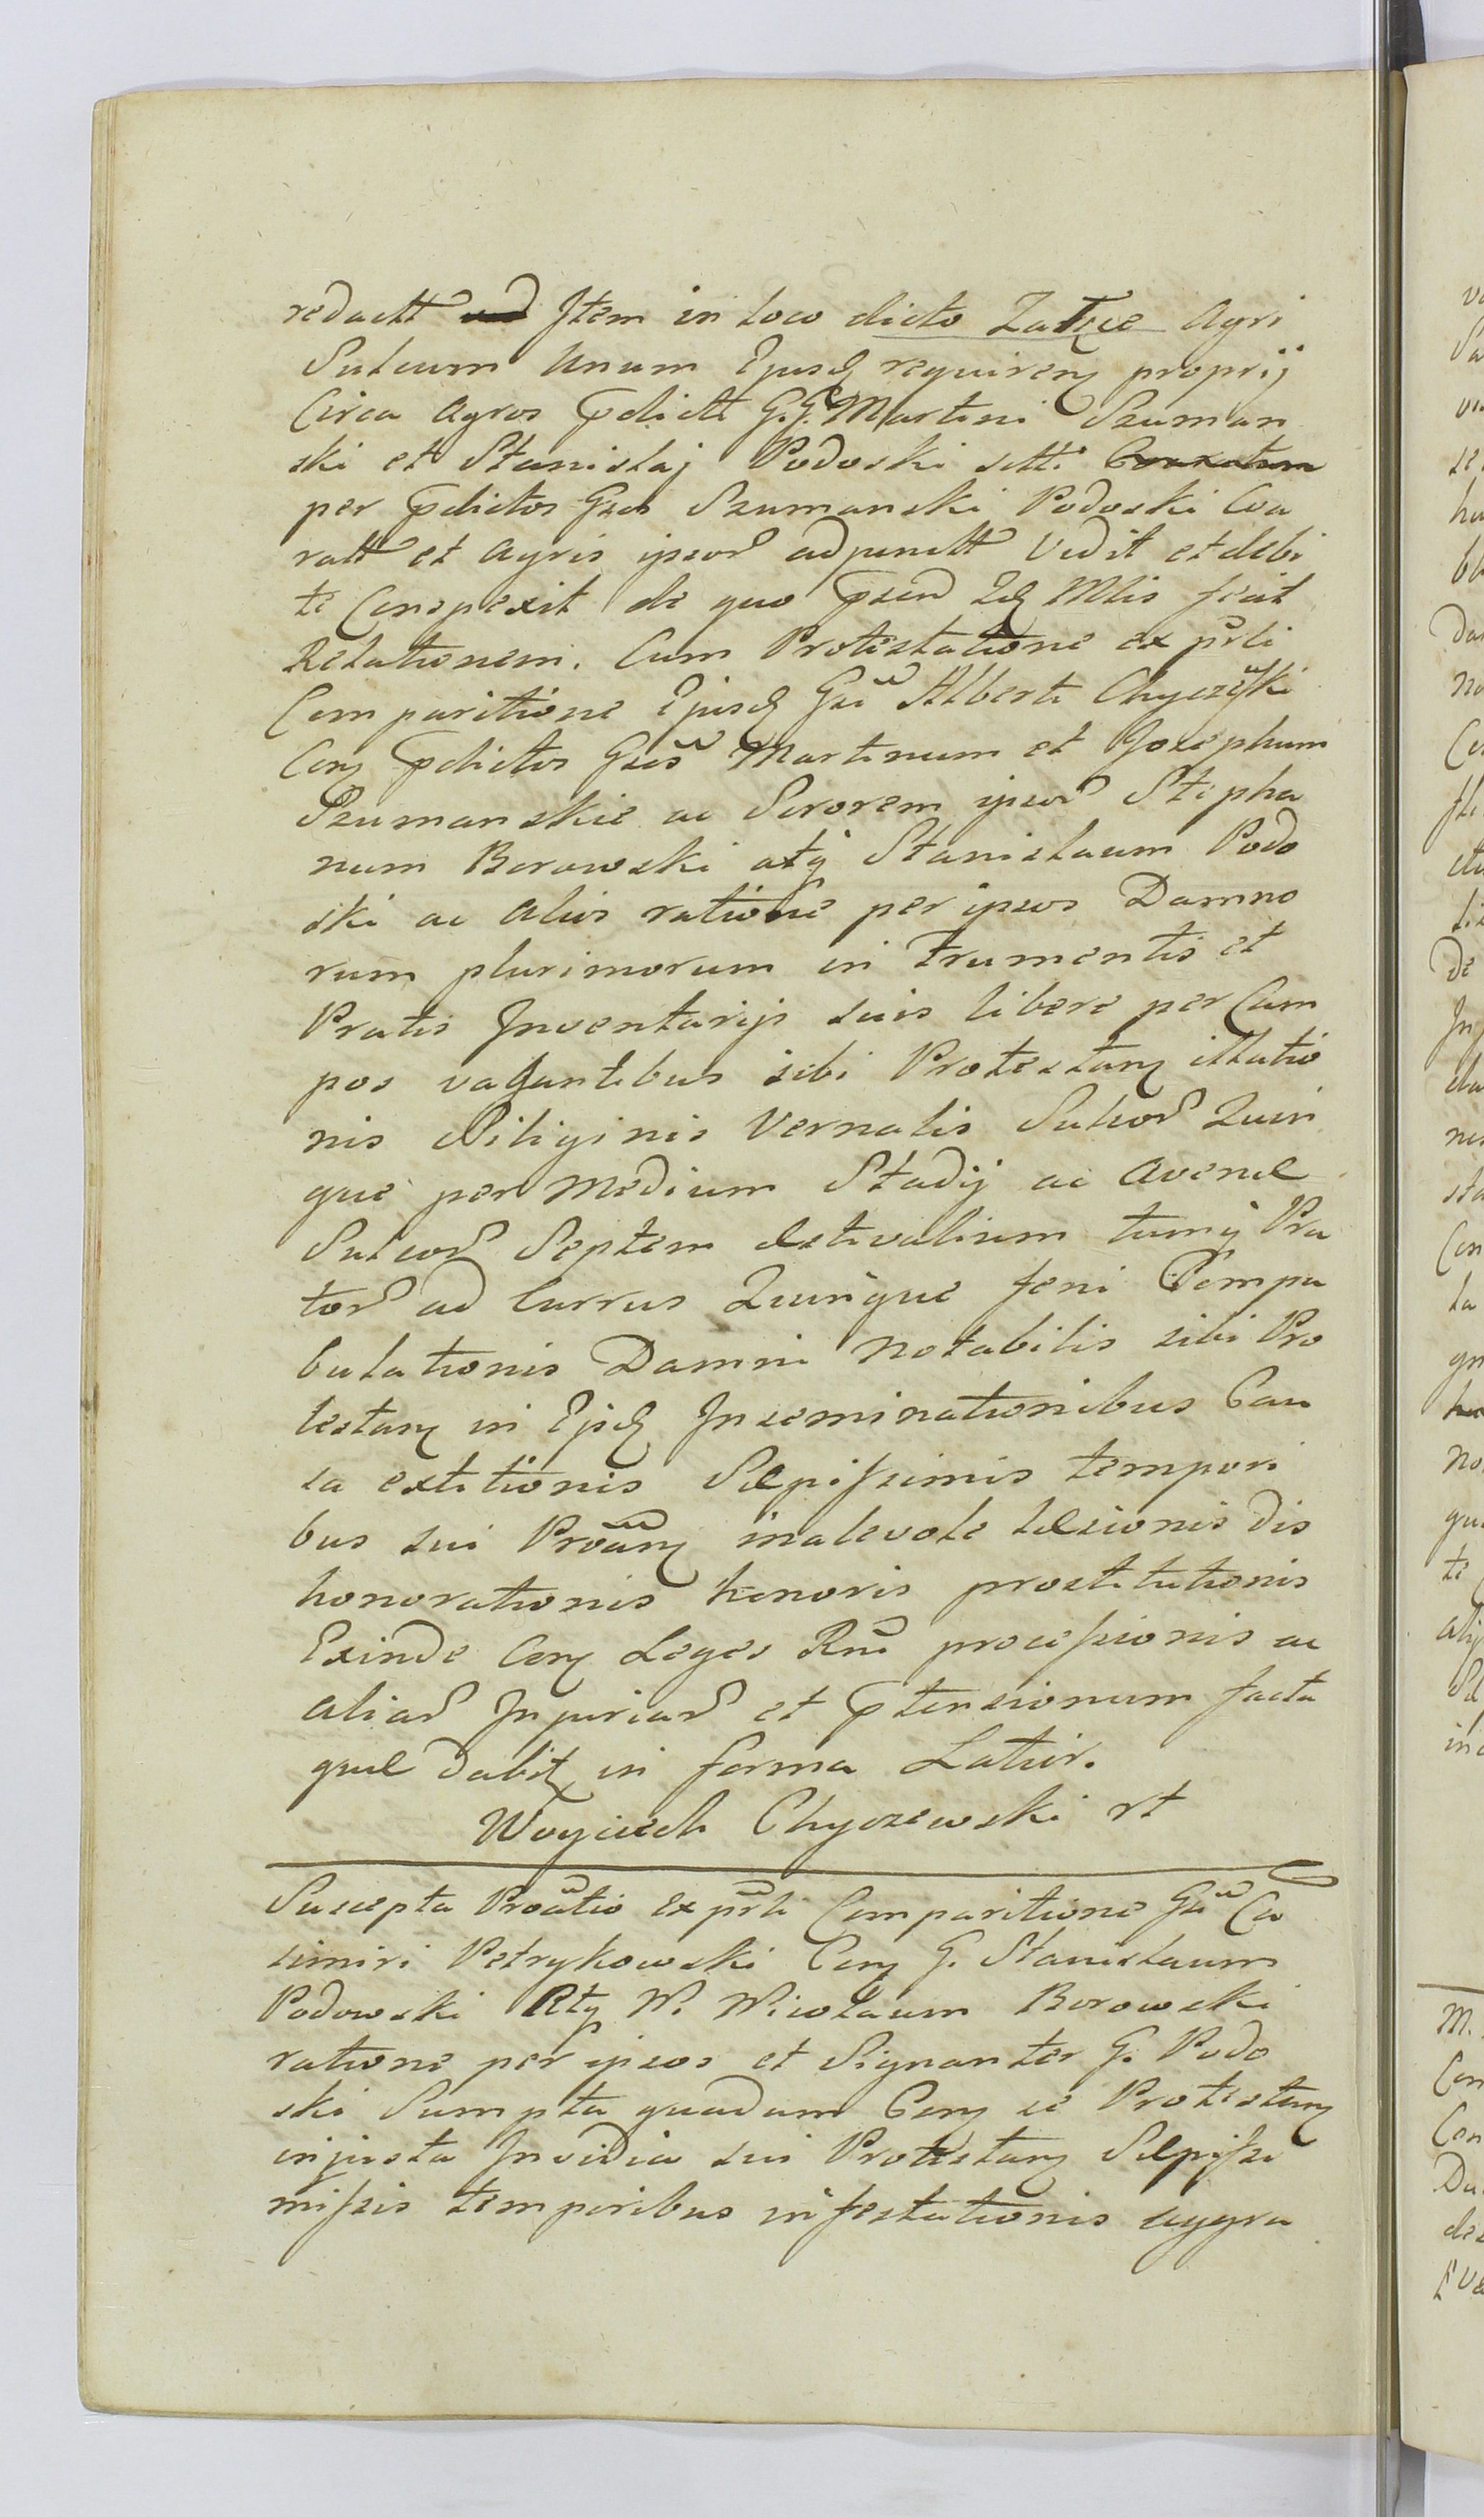 redactt Item in loco dicto Zatxe Agri
Sulcum Unum Ejusd requiren proprij
Circa Agros pdictt G.G. Martini Szuman
ski et Stanislaj Podoski sitti Coaratum
per pdictos Gsos Szumanski Podoski Coa
ratt et Agris ipsor adjunctt Vidit et debi
te Conspexit de quo psens Idq Mlis fecit
Relationem. Cum Protestatione ex psrli
Comparitione Ejusd Gsi Alberti Chyczeski
Con pdictos Gsos Martinum et Josephum
Szumanskie ac Sororem ipsor Stepha
num Borowski atq Stanislaum Podo
ski ac Alios ratione per ipsos Damno
rum plurimorum in Frumentis et
Pratis Inventarijs suis libere per Cam
pos vagantibus sibi Protestan illatio
nis Siliginis Vernalis Sulcor Quin
que per Medium Stadij ac Avenæ
Sulcor Septem Æstivalium tumq Pra
tor ad Currus Quinque feni Compa
bulationis Damni Notabilis sibi Pro
testan in Ejsd Inseminationibus Cau
sa extitionis Sæpissimis tempori
bus sui Protñ malevole læsionis dis
honorationis honoris prostitutionis
Exinde Con Leges Rni processionis ac
Aliar Injuriar et ptensionum facta
quæ dabit in forma Latiori.
Woyciech Chyczewski rt
Suscepta Protño ex psrli Comparitione Gsi Ca
simiri Petrykowski Con G. Stanislaum
Podowski Atq W. Nicolaum Borowski
ratione per ipsos et Signanter G. Podo
ski Sumpta quadam Con se Protestan
injusta Invidia sui Protestan Sæpissi
missis temporibus infestationis aggra